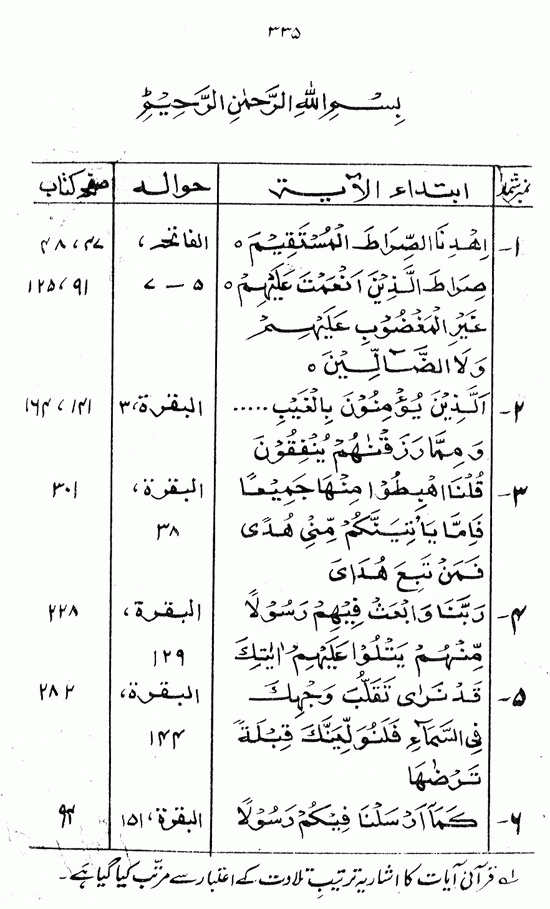 ۳۳۵
بِسْمِ اللهِ الرَّحْمٰنِ الرَّحِيْمِ
نمبر شمار ابتداء الآیۃ حوالہ صفحہ کتاب
۱- اِهْدِنَا الصِّرَاطَ الْمُسْتَقِيْمَ ه الفاتحہ، ۴۷، ۴۸
صِرَاطَ الَّذِيْنَ اَنْعَمْتَ عَلَيْهِمْ ه ۵ – ۷ ۹۱، ۱۲۵
غَيْرِ الْمَغْضُوْبِ عَلَيْهِمْ
وَلَا الضَّآلِّيْنَ ه
۲- اَلَّذِيْنَ يُؤْمِنُوْنَ بِالْغَيْبِ ..... البقرة،۳ ۱۴۱، ۱۶۴
وَمِمَّا رَزَقْنٰهُمْ يُنْفِقُوْنَ
۳- قُلْنَا اهْبِطُوْا مِنْهَا جَمِيْعًا البقرة، ۳۰۱
فَاِمَّا يَاْتِيَنَّكُمْ مِّنِّيْ هُدًى ۳۸
فَمَنْ تَبِعَ هُدَاىَ
۴- رَبَّنَا وَابْعَثْ فِيْهِمْ رَسُوْلًا البقرة، ۲۲۸
مِّنْهُمْ يَتْلُوْا عَلَيْهِمْ اٰيٰتِكَ ۱۲۹
۵- قَدْ نَرٰى تَقَلُّبَ وَجْهِكَ البقرة، ۲۸۲
فِي السَّمَآءِ فَلَنُوَلِّيَنَّكَ قِبْلَةً ۱۴۴
تَرْضٰهَا
۶- كَمَآ اَرْسَلْنَا فِيْكُمْ رَسُوْلًا البقرة، ۱۵۱
؎۱ قرآنی آیات کا اشاریہ ترتیبِ تلاوت کے اعتبار سے مرتّب کیا گیا ہے۔